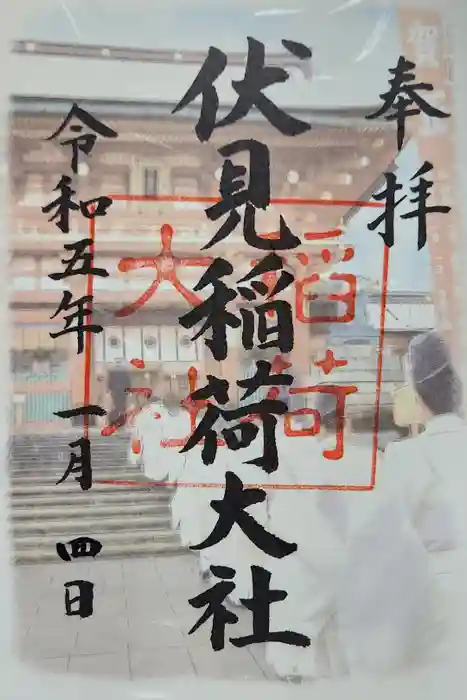 奉拝
伏見稲荷大社
稲荷
大社
令和五年 一月 四日